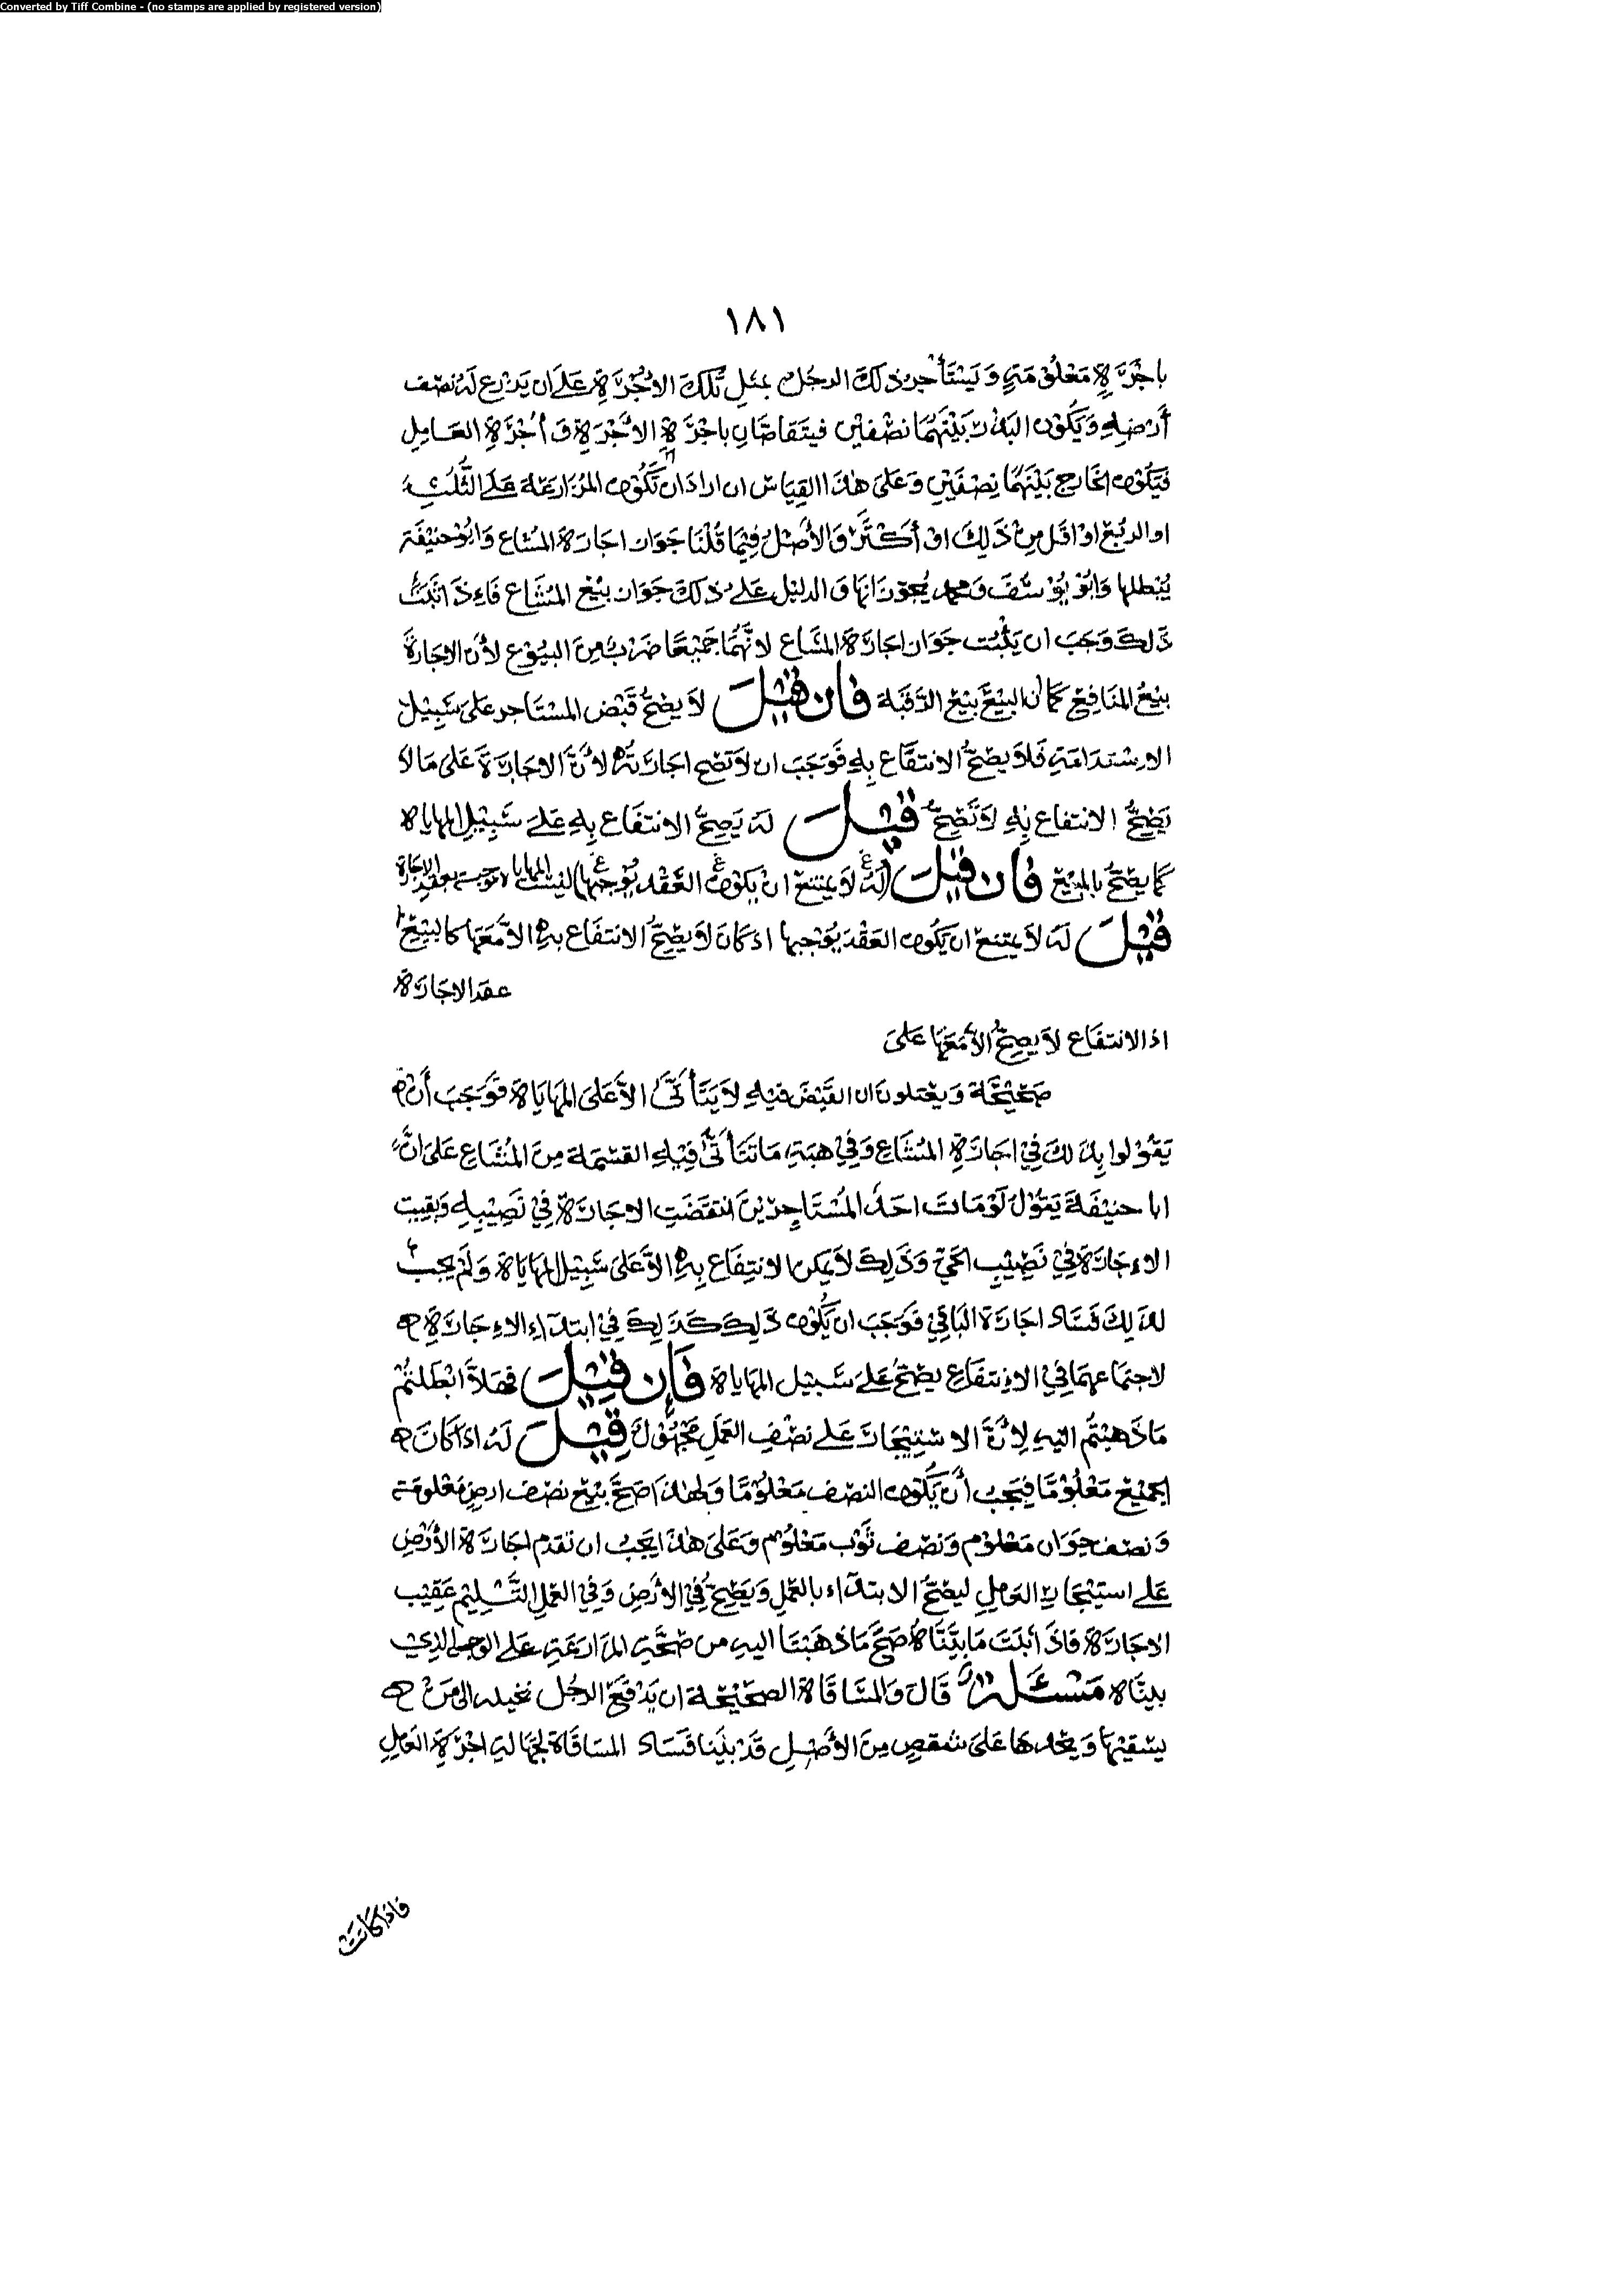 Converted by Tiff Combine - (no stamps are applied by registered version)
١٨١
باجْرَةٍ مَعْلُوْمَةٍ وَيَسْتَأجر ذلكَ الرجُل بمثلِ تلكَ الاُجْرَةِ عَلَى ان يَزْرع لَهُ نصْف
أرْضِهِ وَيَكُوْن البذر بَيْنَهُمَا نصْفين فيتَقاصَّانِ باجْرَةِ الاُجْرَةِ وَ اُجْرَةِ العَامِلِ
فيَكُوْن الخَارج بَيْنَهُمَا نِصْفَيْنِ وَعَلى هذا القِيَاسِ ان ارادَ ان تَكُوْن المُزارعَة عَلَى الثُّلُثِ
او الربُع او اقَل مِنْ ذَلِكَ اوْ أكَثَرَ وَالأصْلُ فِيْمَا قُلْنَا جَوَاز اجارَة المشَاع وَابُوْحنيْفَة
يُبْطلها وَابُوْ يُوْسُفَ وَمحمد يُجوّزَانهَا وَالدليْل عَلى ذلكَ جَوَاز بيْع المُشَاع فَاءذَا ثبَتَ
ذَلكَ وَجَبَ ان يَثْبُت جَوَاز اجَارَة المشَاع لانَّهُمَا جَمِيْعًا ضَرْبٌ مِنَ البيُوْع لأن الاجَارَةَ
بيْعُ المنَافِعِ كمَا ان البيْعَ بَيْعُ الرَّقبَة فَان قِيْلَ لاَ يصِحُّ قَبْض المسْتَاجر عَلىَ سَبِيْلِ
الاسْتدَامَةِ فَلاَ يصِحُّ الانتفَاع بِهِ فَوَجَبَ ان لاَ تصح اجَارَتُهُ لأنَّ الاجَارَةَ عَلَى مَا لا
يَصِحُّ الانتفاع بِهِ لاَ تَصِحُّ قِيْلَ لَهُ يَصِحُّ الانتفَاع بِهِ عَلىَ سَبِيْلِ المهَايَاة
كمَا يصِحُّ بالمبيْعِ فَان قِيْلَ لَهُ لاَ يمتنع ان يكوْن العَقْد يُوْجبهَا ليْسَت المهَايَاة توجب بعقدِ الاجارَة
قِيْلَ لَهُ لاَ يمتنع ان يَكُوْن العَقْدَ يُوْجبهَا اذ كانَ لاَ يصِحُّ الانتفَاع بهِ الاَّ مَعَهَا كالبيْع
عقد الاجَارَة
اذ الانتفَاع لاَ يصِحُّ الاَّ مَعَهَا عَلىَ
صَحِيْحَة وَيعْتلون ان القبْضَ فيْهِ لاَ يَتَأتَّىَ الاَّ عَلىَ المهَايَاة فَوَجَبَ أنْ
يَقوْلوا بِذلكَ فِيْ اجَارَةِ المُشَاعِ وَفِيْ هبَةِ مَا تَتَأتَّىَ فِيْهِ القسْمَة مِنَ المُشَاعِ عَلىَ انَّ
ابا حنيْفَةَ يَقوْلُ لَوْ مَاتَ احَدُ المُسْتَاجِرَيْنَ انتقَضَتِ الاجَارَة فِيْ نَصِيْبِهِ وَبَقِيَت
الاءجَارَة فِيْ نَصِيْبِ الحَيِّ وَذَلِكَ لاَ يمكن الانتِفَاع بِهِ الاَّ عَلىَ سَبِيْلِ المهَايَاة وَلَمْ يجبْ
لذَلِكَ فَسَاد اجَارَة البَاقِيْ فَوَجَبَ ان يَكُوْن ذَلِكَ كَذَلِكَ فِيْ ابتدَاءِ الاءجَارَةِ
لاجتمَاعهمَا فِيْ الاءنتفَاعِ يصِحُّ عَلىَ سَبِيْل المهَايَاة فَإن قِيْلَ فهَلاَّ ابْطَلتُمْ
مَا ذَهبْتُم اليهِ لِأنَّ الاسْتِيْجَارَ عَلى نصْفِ العَمَلِ مجْهُوْلٌ قِيْلَ لَهُ اذا كَانَ
الجميْع مَعْلُوْمًا فيَجِبُ أنْ يَكُوْن النصْف مَعْلوْمًا وَلهذا صَحَّ بيْع نصْف ارضٍ مَعْلوْمَة
وَنصْف حيَوَان مَعْلوْم وَنصْف ثَوْب مَعْلُوْم وَعَلىَ هذا يجَبُ ان تقدم اجَارَة الأرْضِ
عَلى استيْجَارِ العَامِلِ ليَصِحَّ الابتدَاء بالعَمَلِ وَيَصِحّ فِيْ الأرْضِ وَفِيْ العَمَلِ التَّسْلِيْم عَقِيْب
الاجَارَة فَاذَا ثبَتَ مَا بيَّنَّاهُ صَحَّ مَا ذَهَبْنَا اليهِ من صِحَّةِ المزَارعَةِ عَلى الوجهِ الذِيْ
بيَّنَّاهُ مَسْئَلَة قَالَ وَالمسَاقَاة الصحِيْحَة ان يَدْفَعَ الرجُل نخيله الى مَنْ
يسْقيْهَا وَيحْدهَا عَلىَ شقصٍ مِنَ الأصْلِ قَدْ بيَّنا فَسَاد المسَاقَاة لجهَالةِ اجْرَةِ العَامِلِ
فاذا كانت